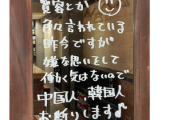 寛容とか
色々言われている
昨今ですが
嫌な思いをして
働く気はないので
中国人、韓国人
お断りします♪